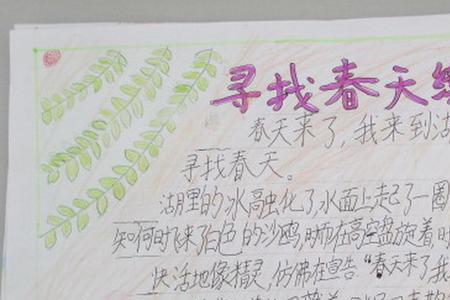 寻找春天
春天来了，我来到湖
寻找春天。
湖里的冰融化了，水面上起了一圈
知何时飞来了白色的沙鸥，时而在高空盘旋着时
快活地像精灵，仿佛在宣告“春天来了我